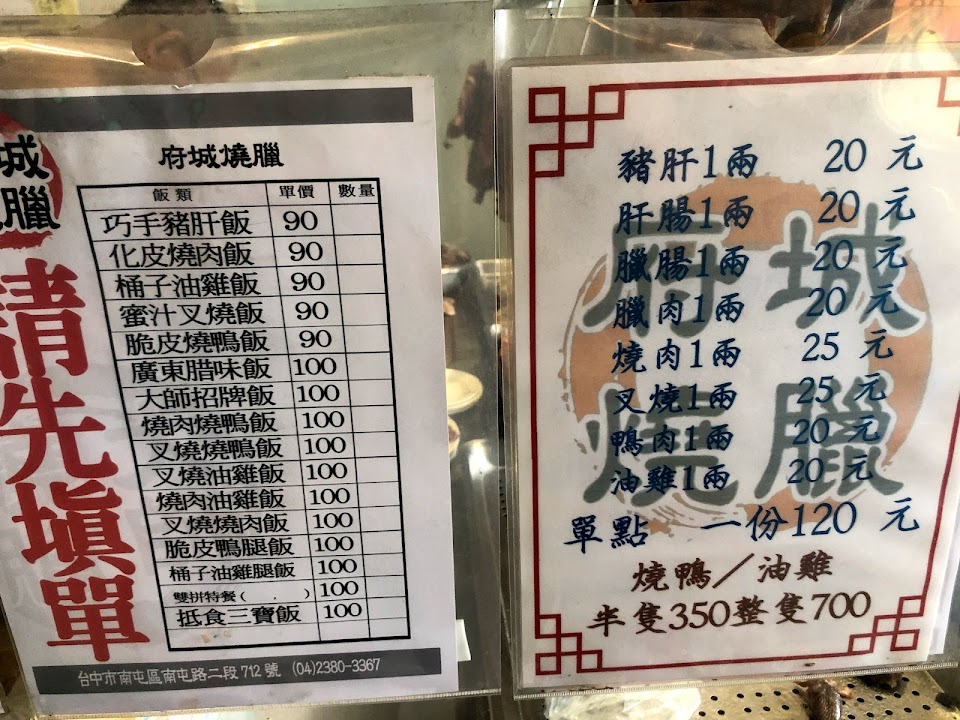 城
臘
請先填單
府城燒臘
飯類 單價 數量
巧手豬肝飯 90
化皮燒肉飯 90
桶子油雞飯 90
蜜汁叉燒飯 90
脆皮燒鴨飯 90
廣東腊味飯 100
大師招牌飯 100
燒肉燒鴨飯 100
叉燒燒鴨飯 100
叉燒油雞飯 100
燒肉油雞飯 100
叉燒燒肉飯 100
脆皮鴨腿飯 100
桶子油雞腿飯 100
雙拼特餐( . ) 100
抵食三寶飯 100
台中市南屯區南屯路二段712號 (04)2380-3367
府城
燒臘
豬肝1兩 20元
肝腸1兩 20元
臘腸1兩 20元
臘肉1兩 20元
燒肉1兩 25元
叉燒1兩 25元
鴨肉1兩 20元
油雞1兩 20元
單點 一份120元
燒鴨/油雞
半隻350整隻700